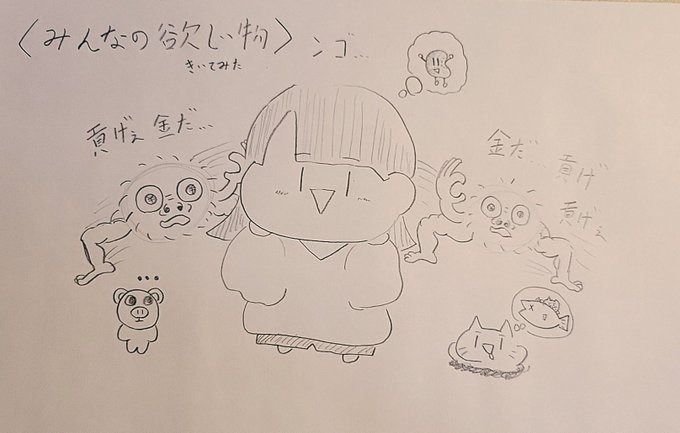 〈みんなの欲しい物〉
きいてみた
ンゴ…
貢げぇ 金だ…
金だ… 貢げ
貢げぇ